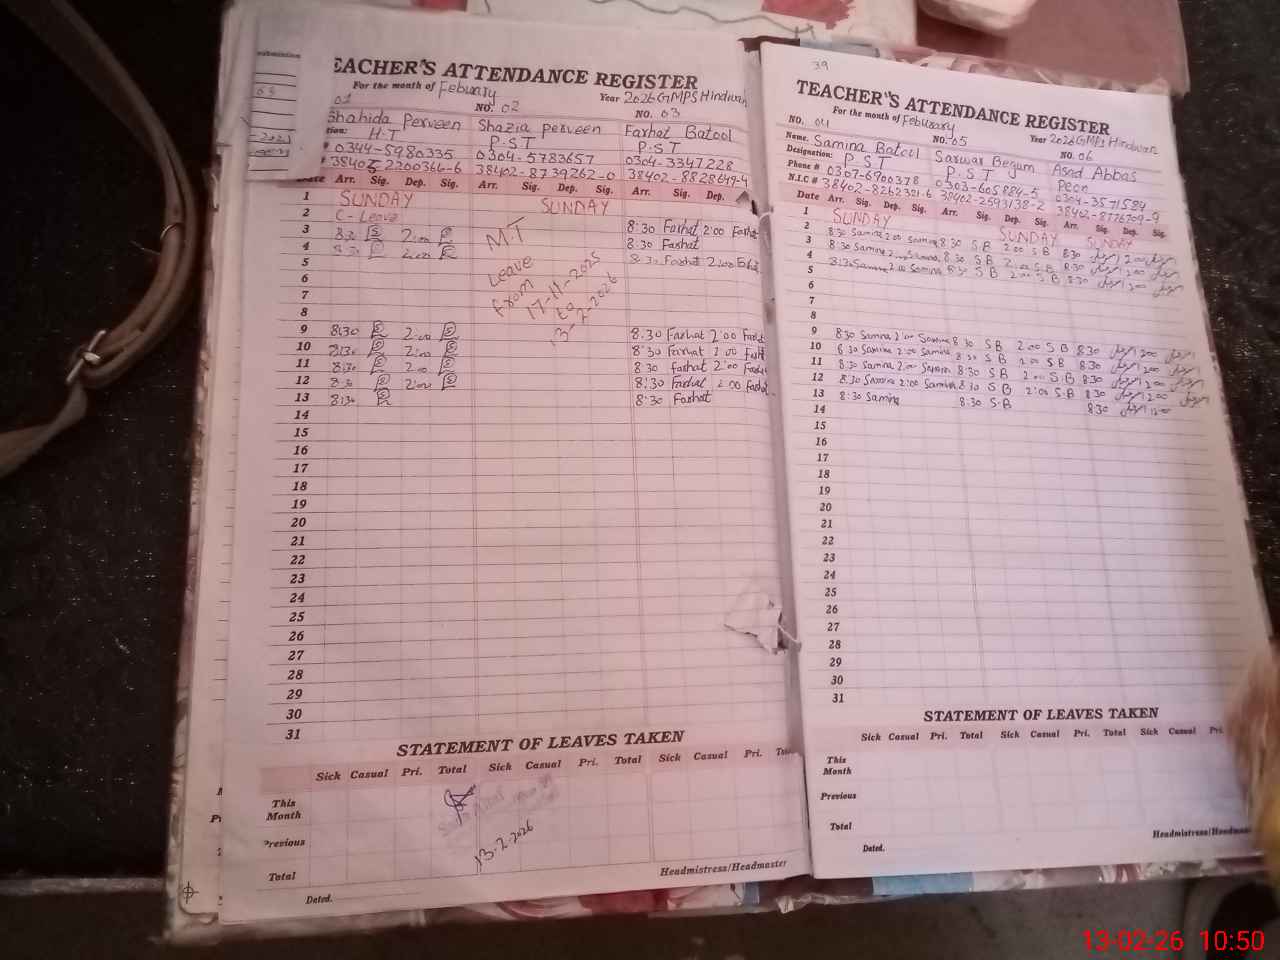 TEACHER'S ATTENDANCE REGISTER
For the month of Febuary Year 2026 GMPS Hindwan
01 NO. 02 NO. 03
Shahida Perveen Shazia perveen Farhat Batool
H.T P.ST P.ST
0344-5980335 0304-5783657 0304-3347228
38405 2200366-6 38402-8739262-0 38402-8828649-4
Date Arr. Sig. Dep. Sig. Arr. Sig. Dep. Sig. Arr. Sig. Dep.
1 SUNDAY SUNDAY
2 C-Leave
3 8:30 2:00 8:30 Farhat 2:00 Farhat
4 8:30 2:00 8:30 Farhat
5 8:30 Farhat 2:00
6
7
8
M.T
Leave
from
17-11-2025
to
13-2-2026
9 8:30 2:00 8:30 Farhat 2:00 Farhat
10 8:30 2:00 8:30 Farhat 2:00
11 8:30 2:00 8:30 Farhat 2:00
12 8:30 2:00 8:30 Farhat 2:00
13 8:30 8:30 Farhat
14
15
16
17
18
19
20
21
22
23
24
25
26
27
28
29
30
31
STATEMENT OF LEAVES TAKEN
Sick Casual Pri. Total Sick Casual Pri. Total Sick Casual Pri.
This Month
Previous
Total
13-2-2026
Headmistress/Headmaster
Dated.
39
TEACHER'S ATTENDANCE REGISTER
For the month of Febuary Year 2026 GMPS Hindwan
NO. 04 NO. 05 NO. 06
Name. Samina Batool Sarwar Begum Asad Abbas
Designation: P.ST P.ST Peon
Phone # 0307-6900378 0303-6058845 0304-3571584
N.I.C # 38402-8262321-6 38402-2593138-2 38402-8776709-9
Date Arr. Sig. Dep. Sig. Arr. Sig. Dep. Sig. Arr. Sig. Dep. Sig.
1 SUNDAY SUNDAY SUNDAY
2 8:30 Samina 2:00 Samina 8:30 S.B 2:00 S.B 8:30 2:00
3 8:30 Samina Samina 8:30 S.B 2:00 S.B 8:30 2:00
4 8:30 Samina 2:00 Samina 8:30 S.B 2:00 S.B 8:30 2:00
5
6
7
8
9 8:30 Samina 2:00 Samina 8:30 S B 2:00 S B 8:30 2:00
10 8:30 Samina 2:00 Samina 8:30 S B 2:00 S B 8:30 2:00
11 8:30 Samina 2:00 Samina 8:30 S B 2:00 S B 8:30 2:00
12 8:30 Samina 2:00 Samina 8:30 S B 2:00 S.B 8:30 2:00
13 8:30 Samina 8:30 S.B 8:30
14
15
16
17
18
19
20
21
22
23
24
25
26
27
28
29
30
31
STATEMENT OF LEAVES TAKEN
Sick Casual Pri. Total Sick Casual Pri. Total Sick Casual Pri.
This Month
Previous
Total
Headmistress/
Dated.
13-02-26 10:50